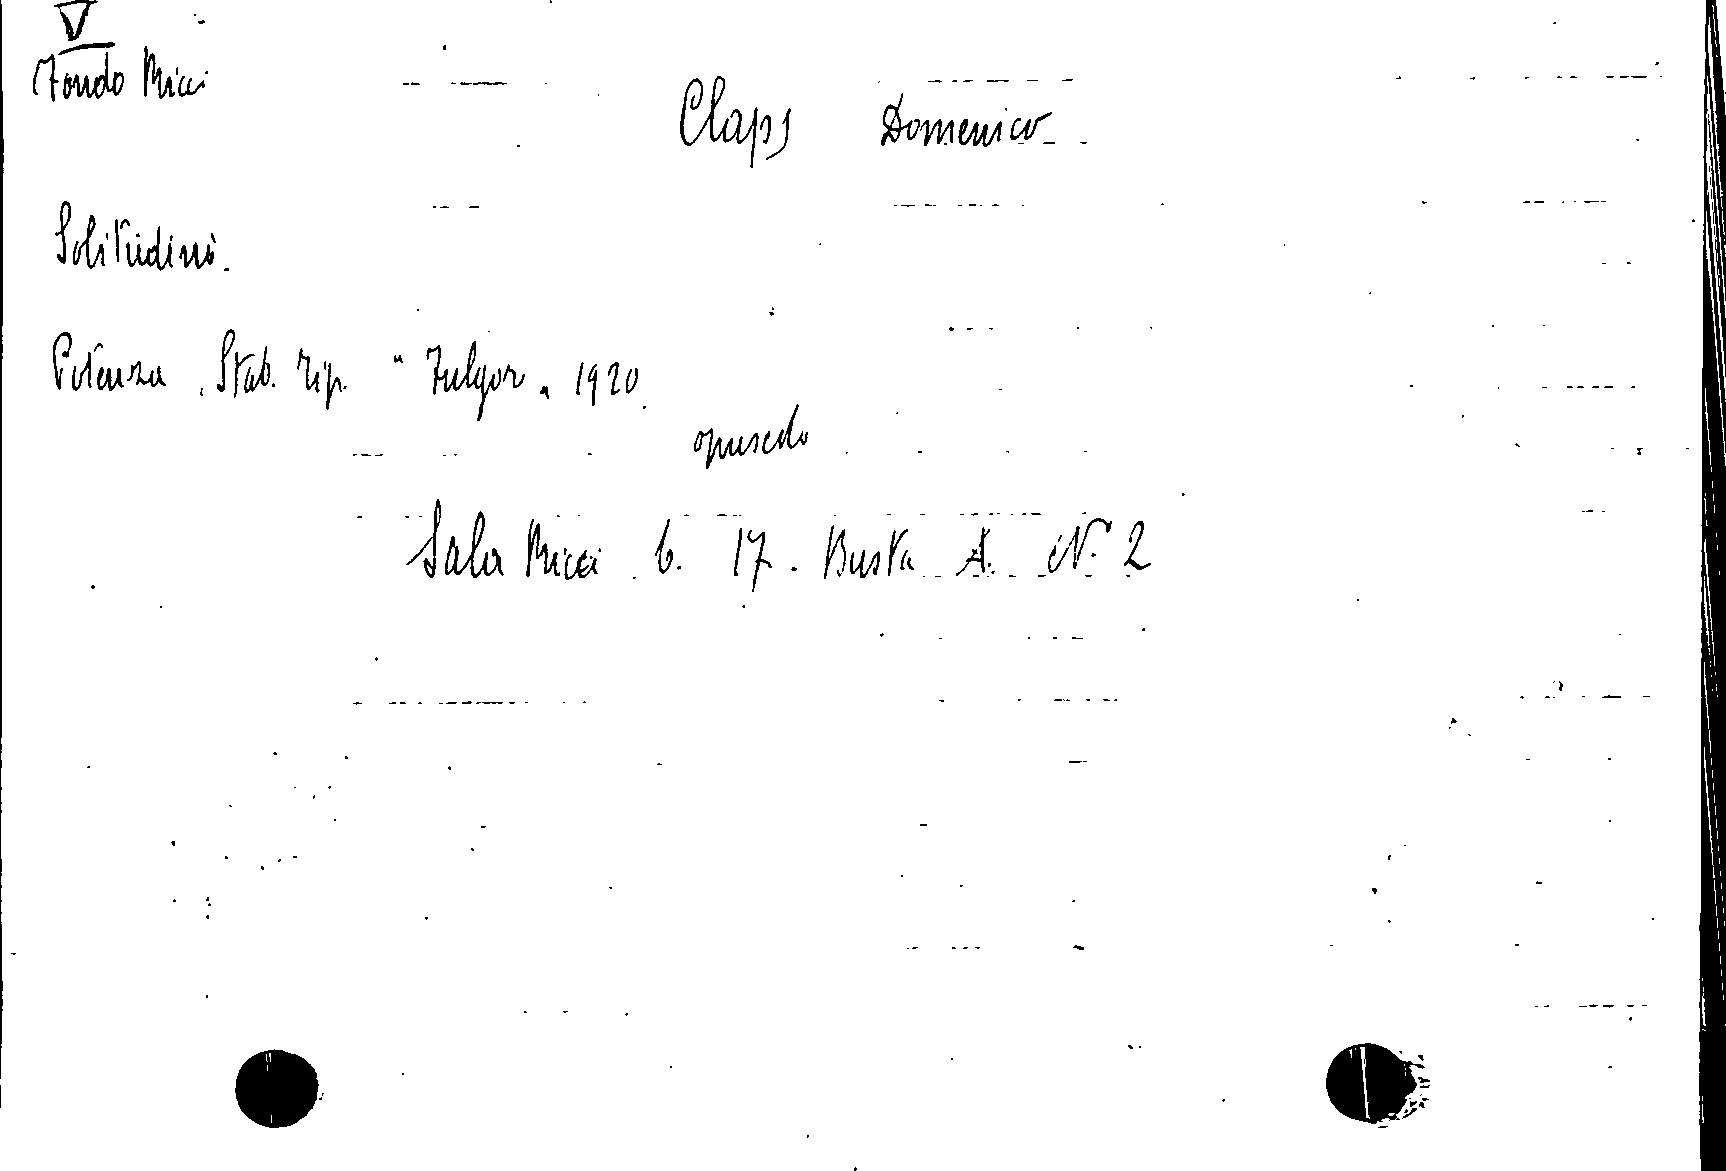 V
Fondo Ricci
Claps Domenico
Solitudini.
Potenza, Stab. Tip. "Fulgor" 1920.
opuscolo
Sala Ricci 6. 17. Busta A. N. 2